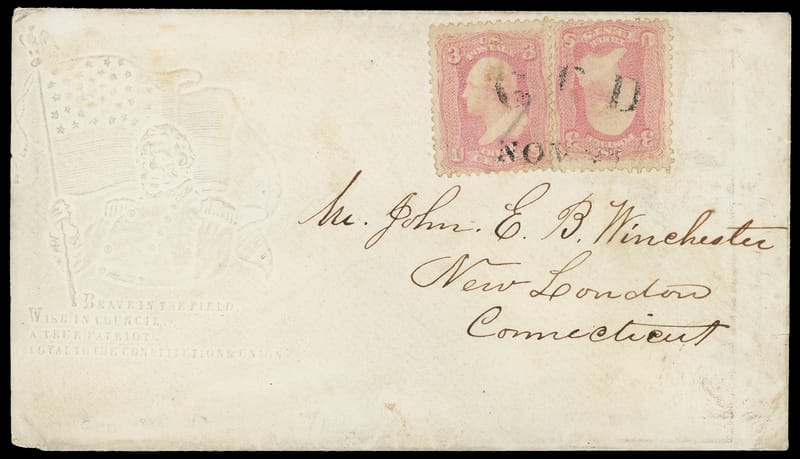 3 U.S. 3
POSTAGE
U
3 U.S. 3
POSTAGE
U
G C D
NOV
Mr. John. E. B. Winchester
New London
Connecticut
BRAVE IN THE FIELD,
WISE IN COUNCIL,
A TRUE PATRIOT,
LOYAL TO THE CONSTITUTION & UNION